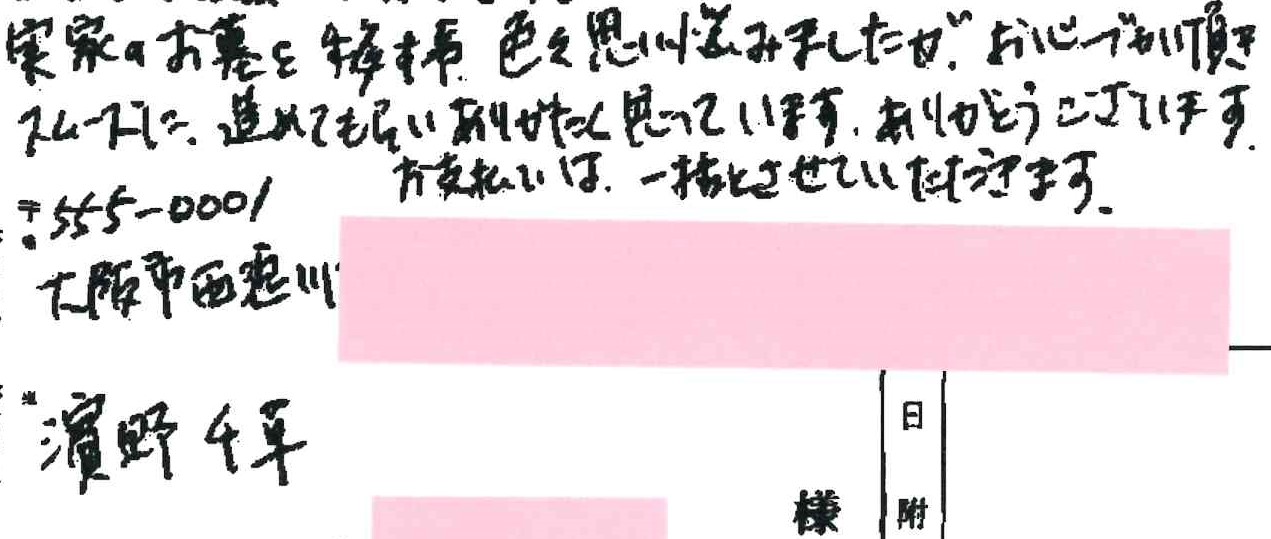 実家のお墓を 色々思い悩みましたが、お心づかい頂き
スムーズに、進めてもらいありがたく思っています。ありがとうございます。
お支払いは、一括とさせていただきます。
〒555-0001
大阪市西淀川
濱野 千草
様
日附